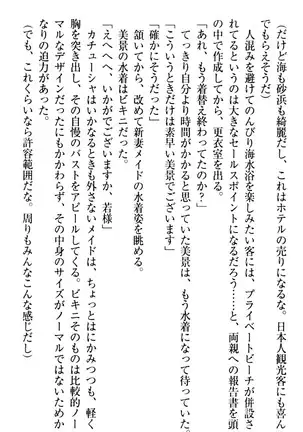 （だけど海も砂浜も綺麗だし、これはホテルの売りになるな。日本人観光客にも喜ん
でもらえそうだ）
人混みを避けてのんびり海水浴を楽しみたい客には、プライベートビーチが併設さ
れてるというのは大きなセールスポイントになるだろう……と、両親への報告書を頭
の中で作成してから、更衣室を出る。
「あれ、もう着替え終わってたのか？」
てっきり自分より時間がかかると思っていた美景は、もう水着になって待っていた。
「こういうときだけは素早い美景でございます」
「確かにそうだった」
頷いてから、改めて新妻メイドの水着姿を眺める。
美景の水着はビキニだった。
「えへへへ、いかがでございますか、若様」
カチューシャはいかなるときも外さないメイドは、ちょっとはにかみつつも、軽く
胸を突き出し、その自慢のバストをアピールしてくる。ビキニそのものは比較的ノー
マルなデザインだったにもかかわらず、その中身のサイズがノーマルではないためか
なりの迫力があった。
（でも、これくらいなら許容範囲だな。周りもみんなこんな感じだし）